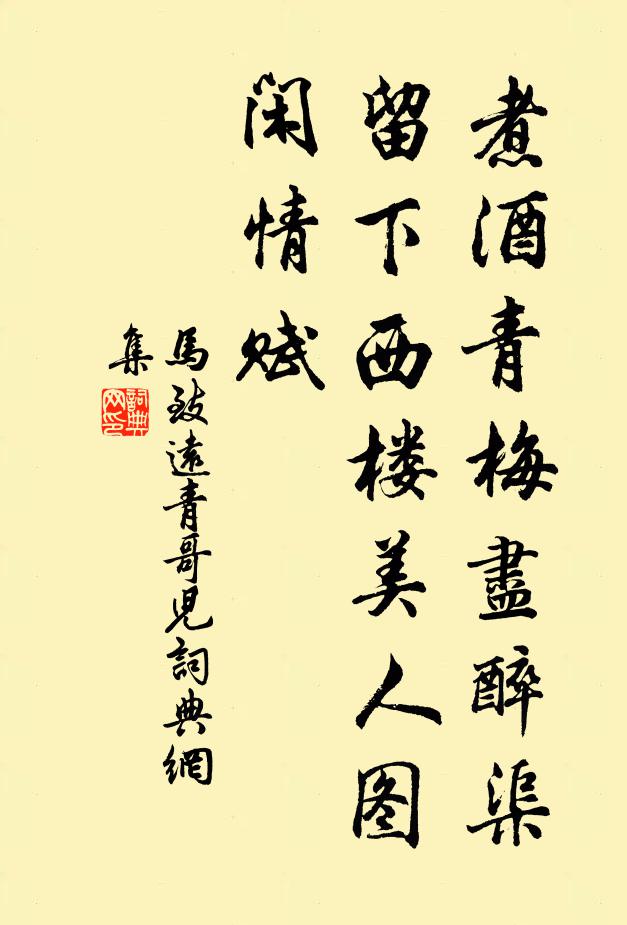 煮酒青梅盡醉渠
留下西楼美人图
闲情赋
馬致遠青哥児詞典網
集
詞典
网印